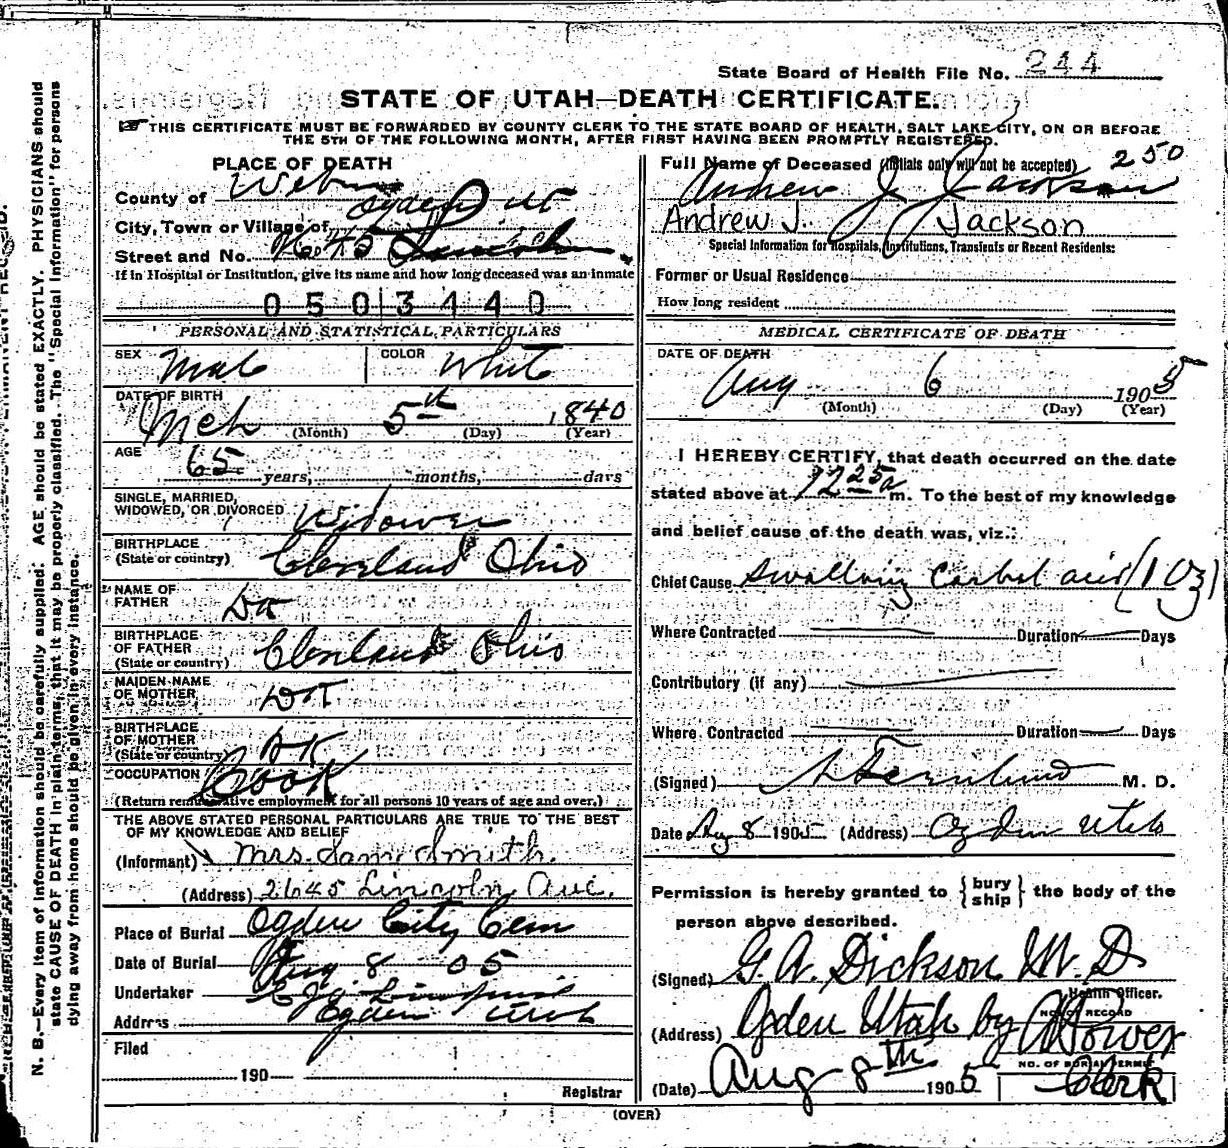 State Board of Health File No. 244
STATE OF UTAH—DEATH CERTIFICATE.
THIS CERTIFICATE MUST BE FORWARDED BY COUNTY CLERK TO THE STATE BOARD OF HEALTH, SALT LAKE CITY, ON OR BEFORE
THE 5TH OF THE FOLLOWING MONTH, AFTER FIRST HAVING BEEN PROMPTLY REGISTERED.
PLACE OF DEATH
County of Weber
City, Town or Village of Ogden Ut
Street and No. 2645 Lincoln
If in Hospital or Institution, give its name and how long deceased was an inmate
0503440
PERSONAL AND STATISTICAL PARTICULARS
SEX Male COLOR White
DATE OF BIRTH
Mch 5th 1840
(Month) (Day) (Year)
AGE
65 years, months, days
SINGLE, MARRIED,
WIDOWED, OR DIVORCED Widower
BIRTHPLACE
(State or country) Cleveland Ohio
NAME OF
FATHER DK
BIRTHPLACE
OF FATHER
(State or country) Cleveland Ohio
MAIDEN NAME
OF MOTHER DK
BIRTHPLACE
OF MOTHER
(State or country) DK
OCCUPATION Cook
(Return remunerative employment for all persons 10 years of age and over.)
THE ABOVE STATED PERSONAL PARTICULARS ARE TRUE TO THE BEST
OF MY KNOWLEDGE AND BELIEF
(Informant) Mrs. Sam Smith.
(Address) 2645 Lincoln Ave.
Place of Burial Ogden City Cem
Date of Burial Aug 8 05
Undertaker
Address Ogden Utah
Filed
190
Registrar
Full Name of Deceased (Initials only will not be accepted) 250
Andrew J Jackson
Andrew J. Jackson
Special Information for Hospitals, Institutions, Transients or Recent Residents:
Former or Usual Residence
How long resident
MEDICAL CERTIFICATE OF DEATH
DATE OF DEATH
Aug 6 1905
(Month) (Day) (Year)
I HEREBY CERTIFY, that death occurred on the date
stated above at 1225 a m. To the best of my knowledge
and belief cause of the death was, viz.:
Chief Cause Swallowing Carbol acid (1 oz)
Where Contracted Duration Days
Contributory (if any)
Where Contracted Duration Days
(Signed) M. D.
Date Aug 8 1905 (Address) Ogden Utah
Permission is hereby granted to { bury ship } the body of the
person above described.
(Signed) G. A. Dickson M. D
Health Officer.
(Address) Ogden Utah by Power
NO. OF RECORD
NO. OF BURIAL PERMIT
(Date) Aug 8th 1905 Clerk
(OVER)
N. B.—Every item of information should be carefully supplied. AGE should be stated EXACTLY. PHYSICIANS should
state CAUSE OF DEATH in plain terms, that it may be properly classified. The "Special Information" for persons
dying away from home should be given in every instance.